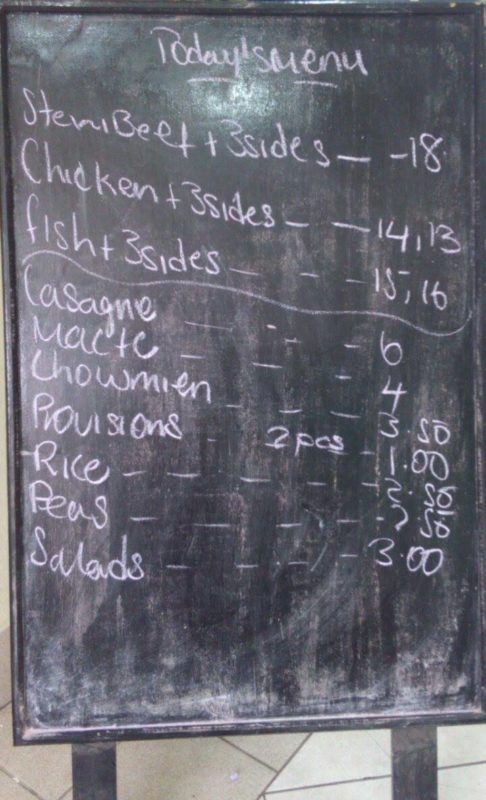 Today's menu
Stew Beef + 3sides — - 18
Chicken + 3sides - — 14, 13
fish + 3sides — - - 15, 16
Lasagne — - - - 6
Mac+C - — - 4
Chowmien - - — 3.50
Provisions - 2pcs - 1.00
Rice - — - - - 2.50
Peas — — — - - 2.50
Salads — - - - 3.00